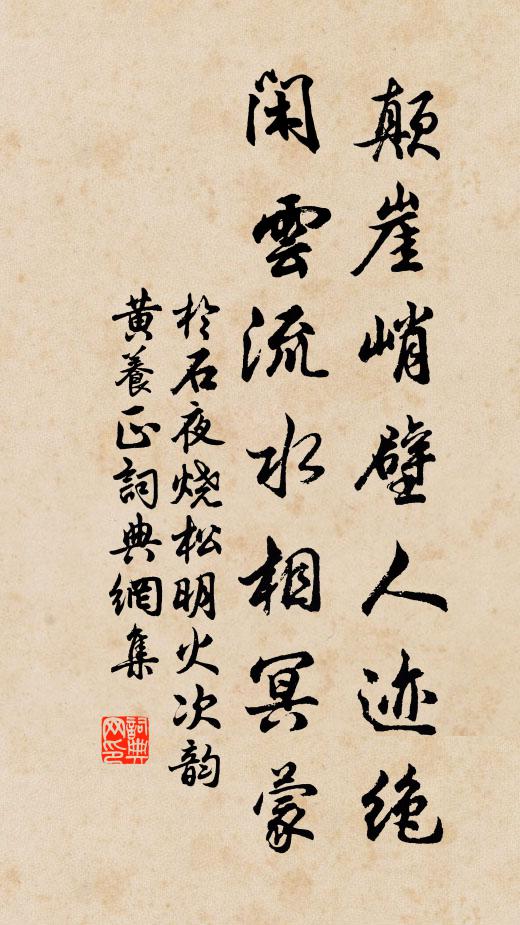 颠崖峭壁人迹绝
闲雲流水相冥蒙
於石夜烧松明火次韵
黄養正詞典網集
詞典网印